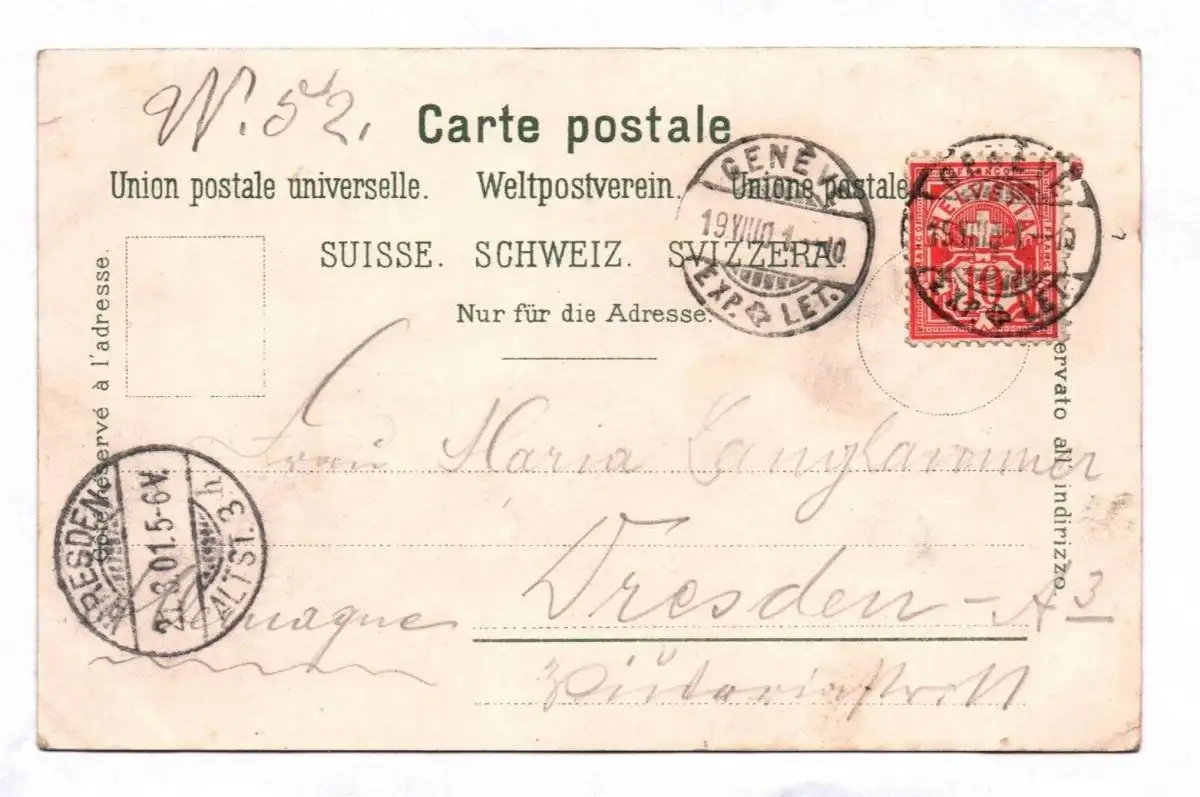 N. 52.
Carte postale
Union postale universelle. Weltpostverein. Unione postale
SUISSE. SCHWEIZ. SVIZZERA.
Nur für die Adresse.
Côté réservé à l'adresse.
ervato all' indirizzo.
GENÈV
19.VIII.01. 10
EXP. LET.
FRANCO
HELVETIA
10
FRANCO
19.VIII.01.
EXP. LET.
Frau Maria Langhammer
Dresden-A 3
Allemagne
DRESDEN
21.8.01.5-6V.
ALTST. 3.h.